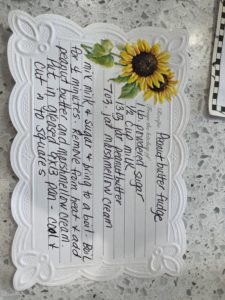 Peanut butter fudge
1 lb powdered sugar
1/2 cup milk
13 oz jar peanut butter
7 oz. jar marshmellow cream
mix milk & sugar & bring to a boil. Boil
for 4 minutes. Remove from heat & add
peanut butter and marshmellow cream
Put in greased 9x13 pan - cool &
cut in to squares